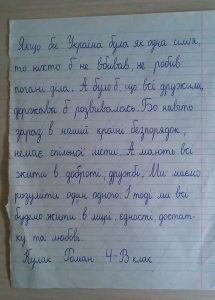 Якщо би Україна була як одна сімя,
то ніхто б не вбивав, не робив
погані діла. А було б, що всі дружили,
держава б розвивалась. Бо навіть
зараз в нашій країні безпорядок,
немає спільної мети. А мають всі
жити в доброті, дружбі. Ми маємо
розуміти один одного. І тоді ми всі
будемо жити в мирі, єдності, достат-
ку та любові.
Кулак Роман 4-В клас